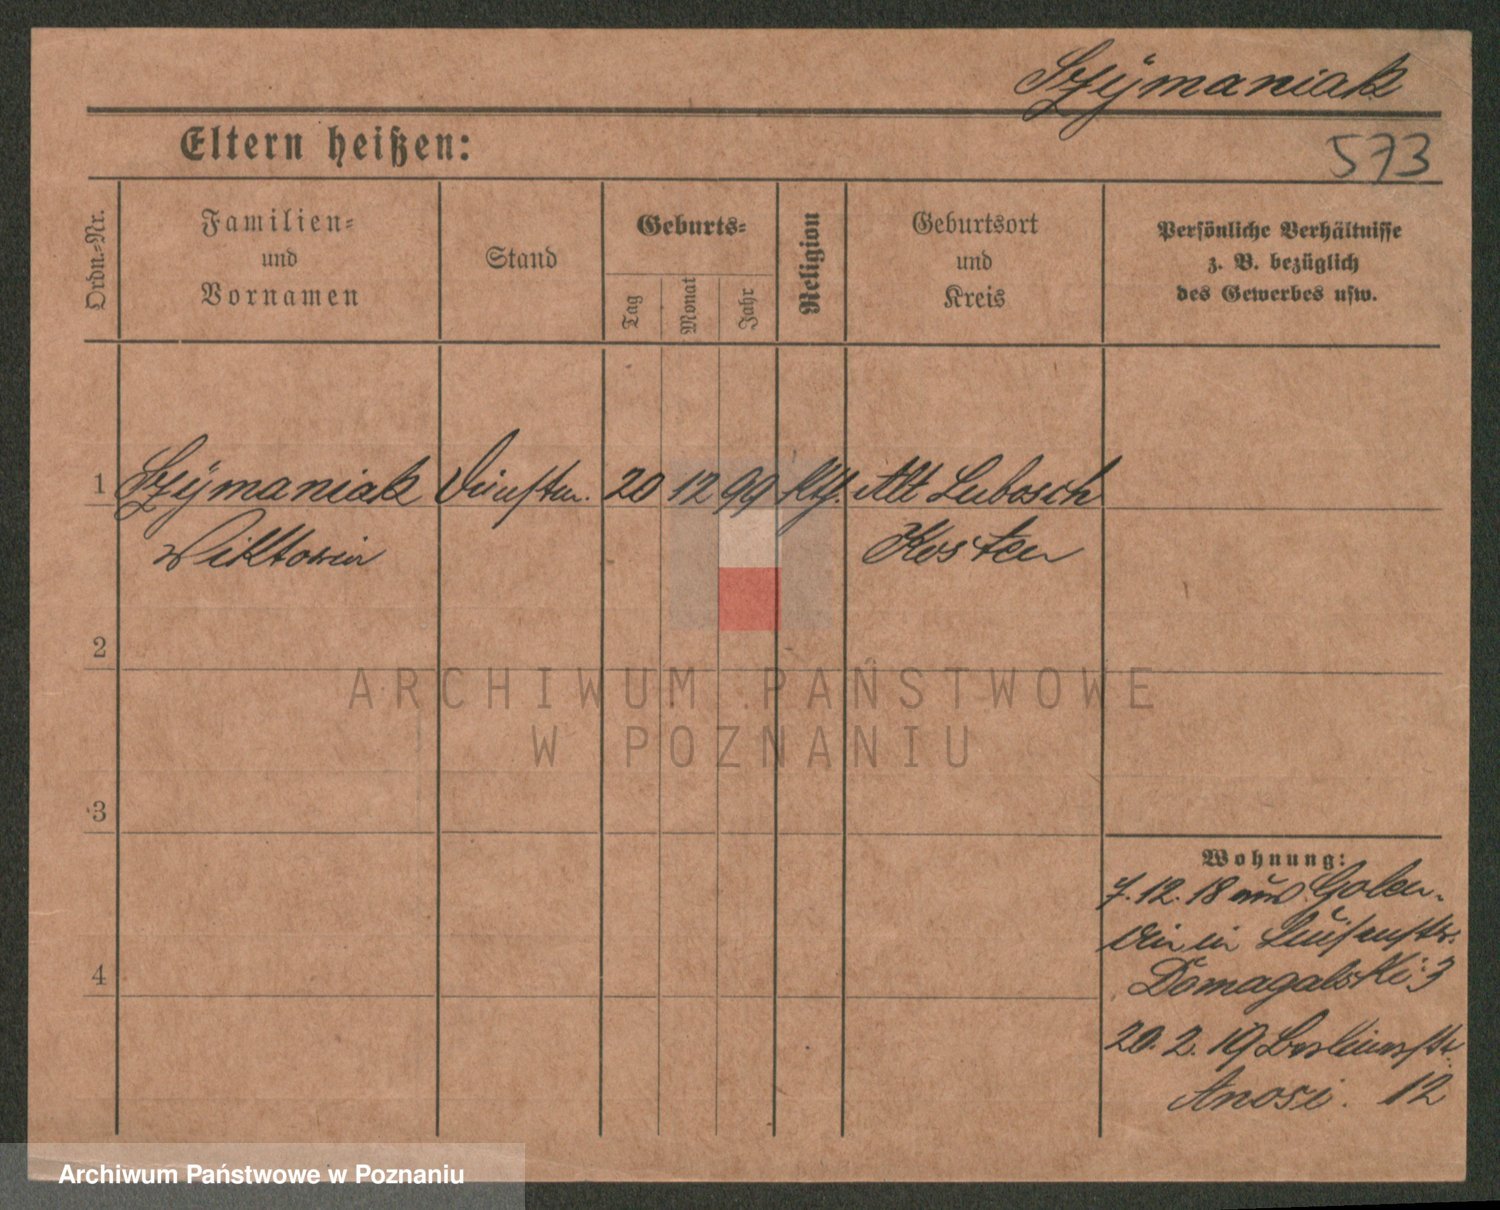 Szymaniak
573
Eltern heißen:
Ordn.-Nr.
Familien-
und
Vornamen
Stand
Geburts-
Tag
Monat
Jahr
Religion
Geburtsort
und
Kreis
Persönliche Verhältnisse
z. B. bezüglich
des Gewerbes usw.
1 Szymaniak 20 12 99 Kth. Alt Lubosch
Wiktoria Kosten
2
3
4
Wohnung:
7.12.18 aus
in Luisenstr.
Domagalski 3
20. 2. 19 Berlinerstr.
12
ARCHIWUM PAŃSTWOWE
W POZNANIU
Archiwum Państwowe w Poznaniu